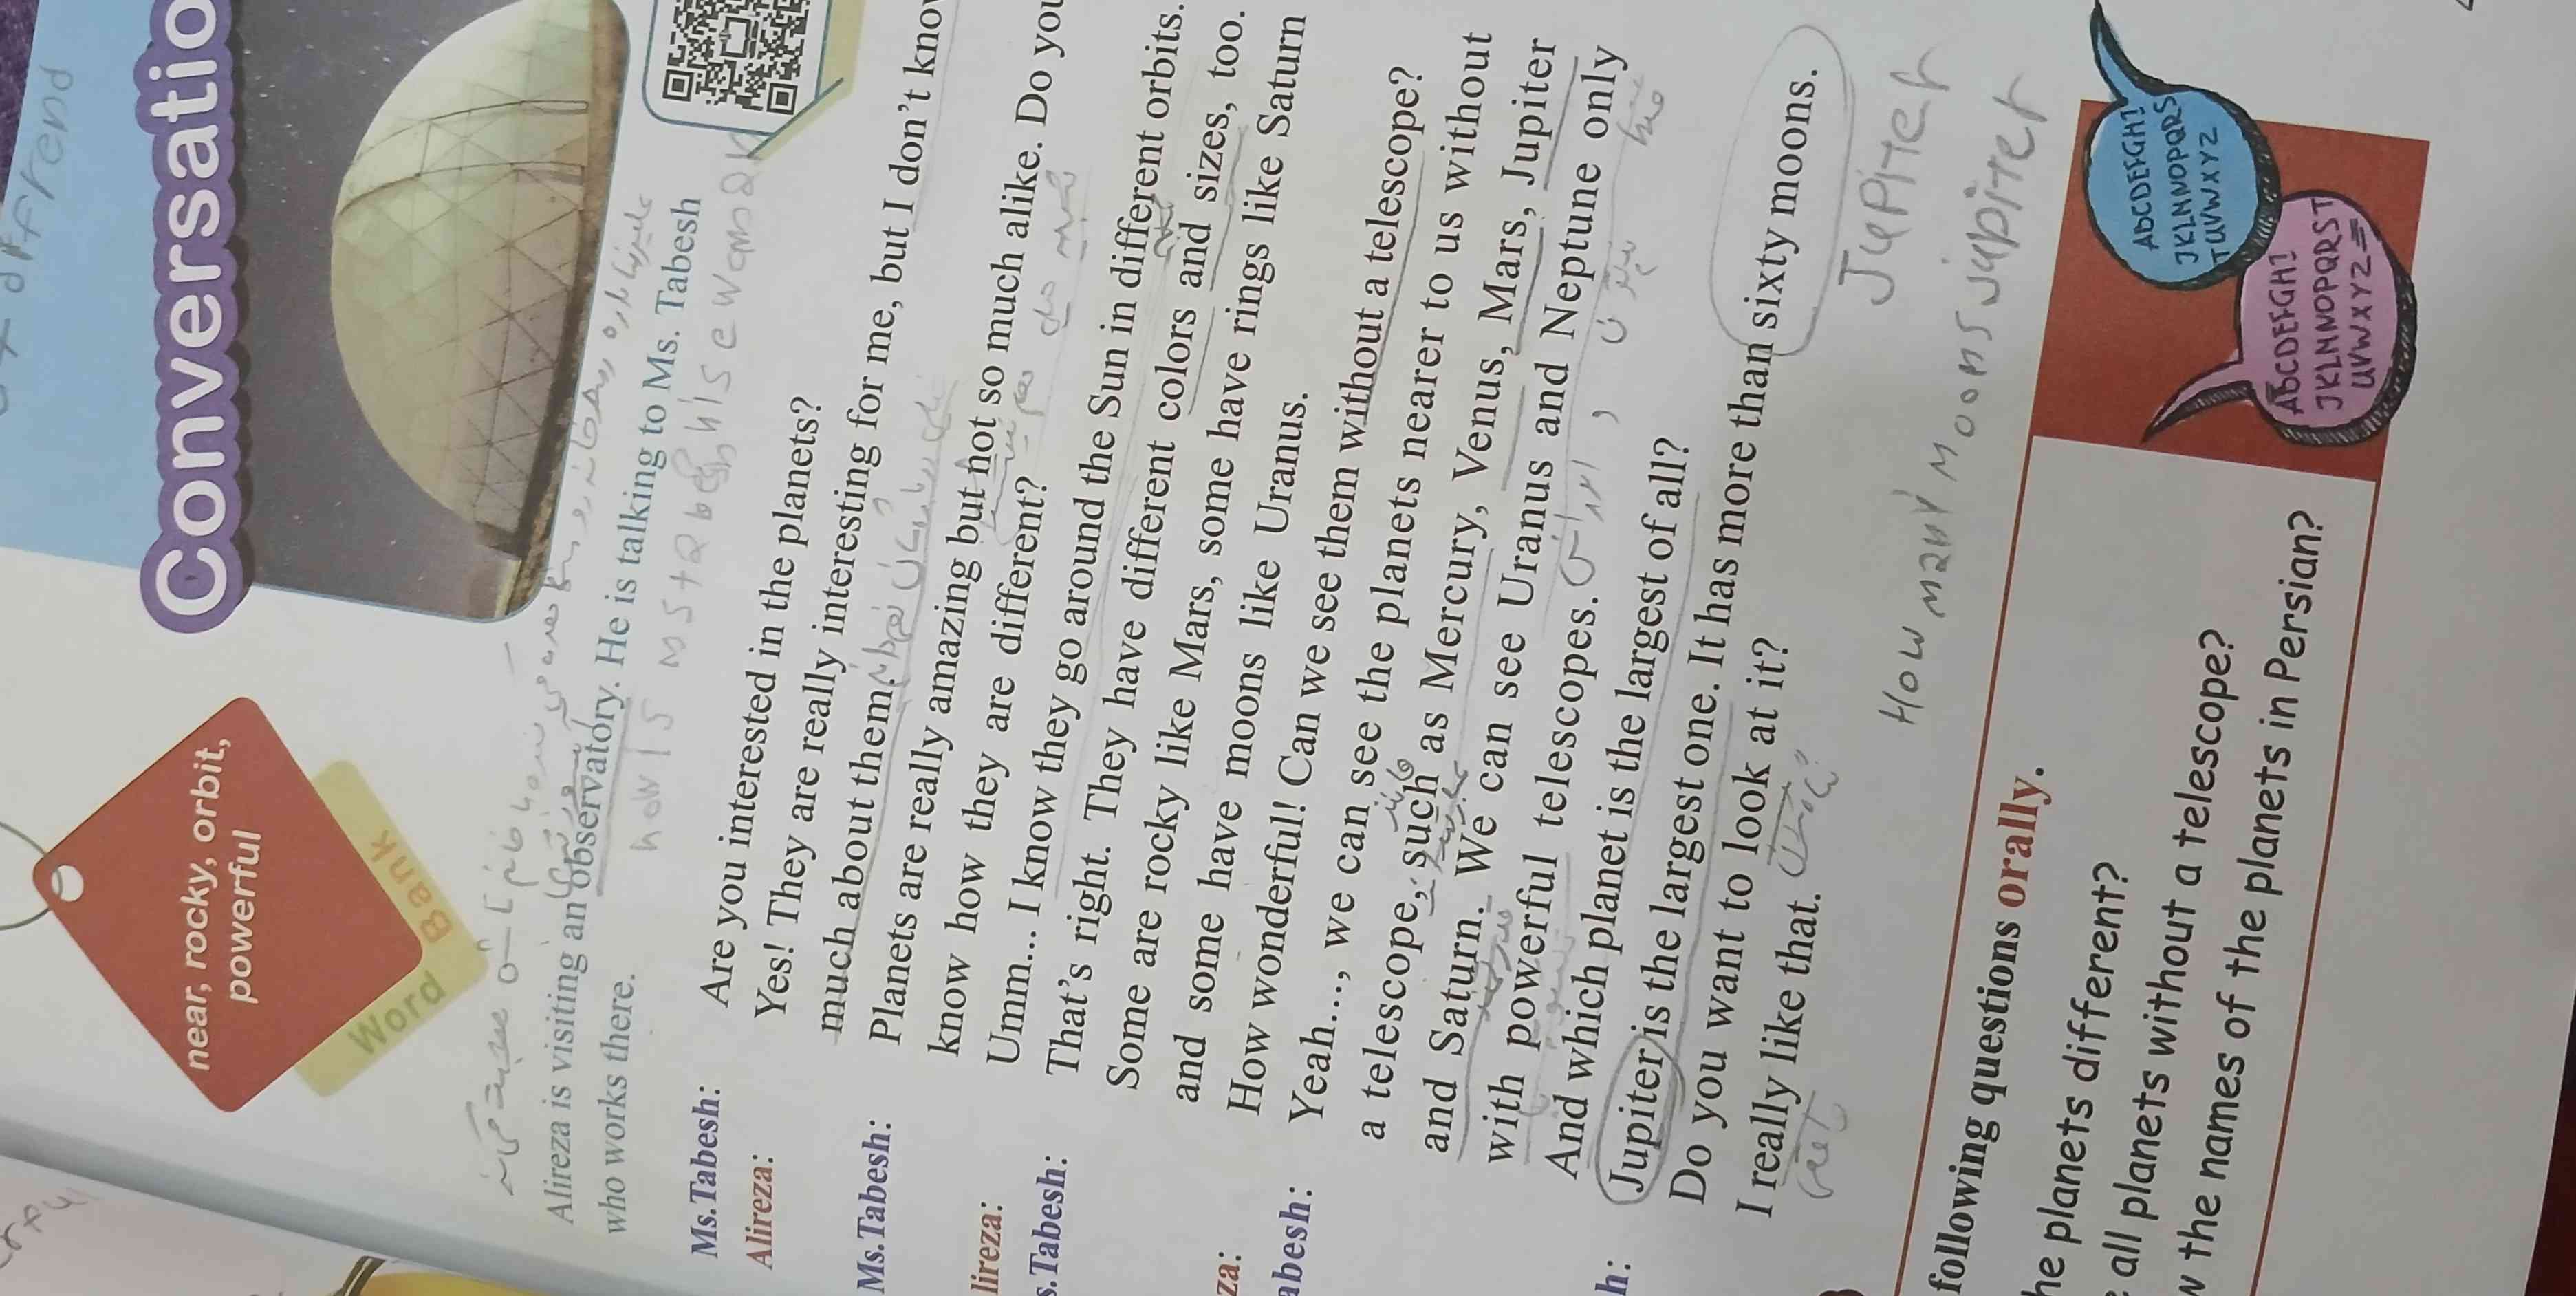 diffrend
Conversatio
near, rocky, orbit,
powerful
Word Bank
Alireza is visiting an observatory. He is talking to Ms. Tabesh
who works there.
Ms.Tabesh: Are you interested in the planets?
Alireza: Yes! They are really interesting for me, but I don't know
much about them.
Ms.Tabesh: Planets are really amazing but not so much alike. Do you
know how they are different?
lireza: Umm... I know they go around the Sun in different orbits.
s.Tabesh: That's right. They have different colors and sizes, too.
Some are rocky like Mars, some have rings like Saturn
and some have moons like Uranus.
za: How wonderful! Can we see them without a telescope?
abesh: Yeah..., we can see the planets nearer to us without
a telescope, such as Mercury, Venus, Mars, Jupiter
and Saturn. We can see Uranus and Neptune only
with powerful telescopes.
And which planet is the largest of all?
h: Jupiter is the largest one. It has more than sixty moons.
Do you want to look at it?
I really like that.
Jupiter
How many moons jupiter
following questions orally.
he planets different?
all planets without a telescope?
w the names of the planets in Persian?
ABCDEFGHI
JKLNNOPQRS
TUVWXYZ
ABCDEFGHI
JKLNNOPQRST
UVWXYZ